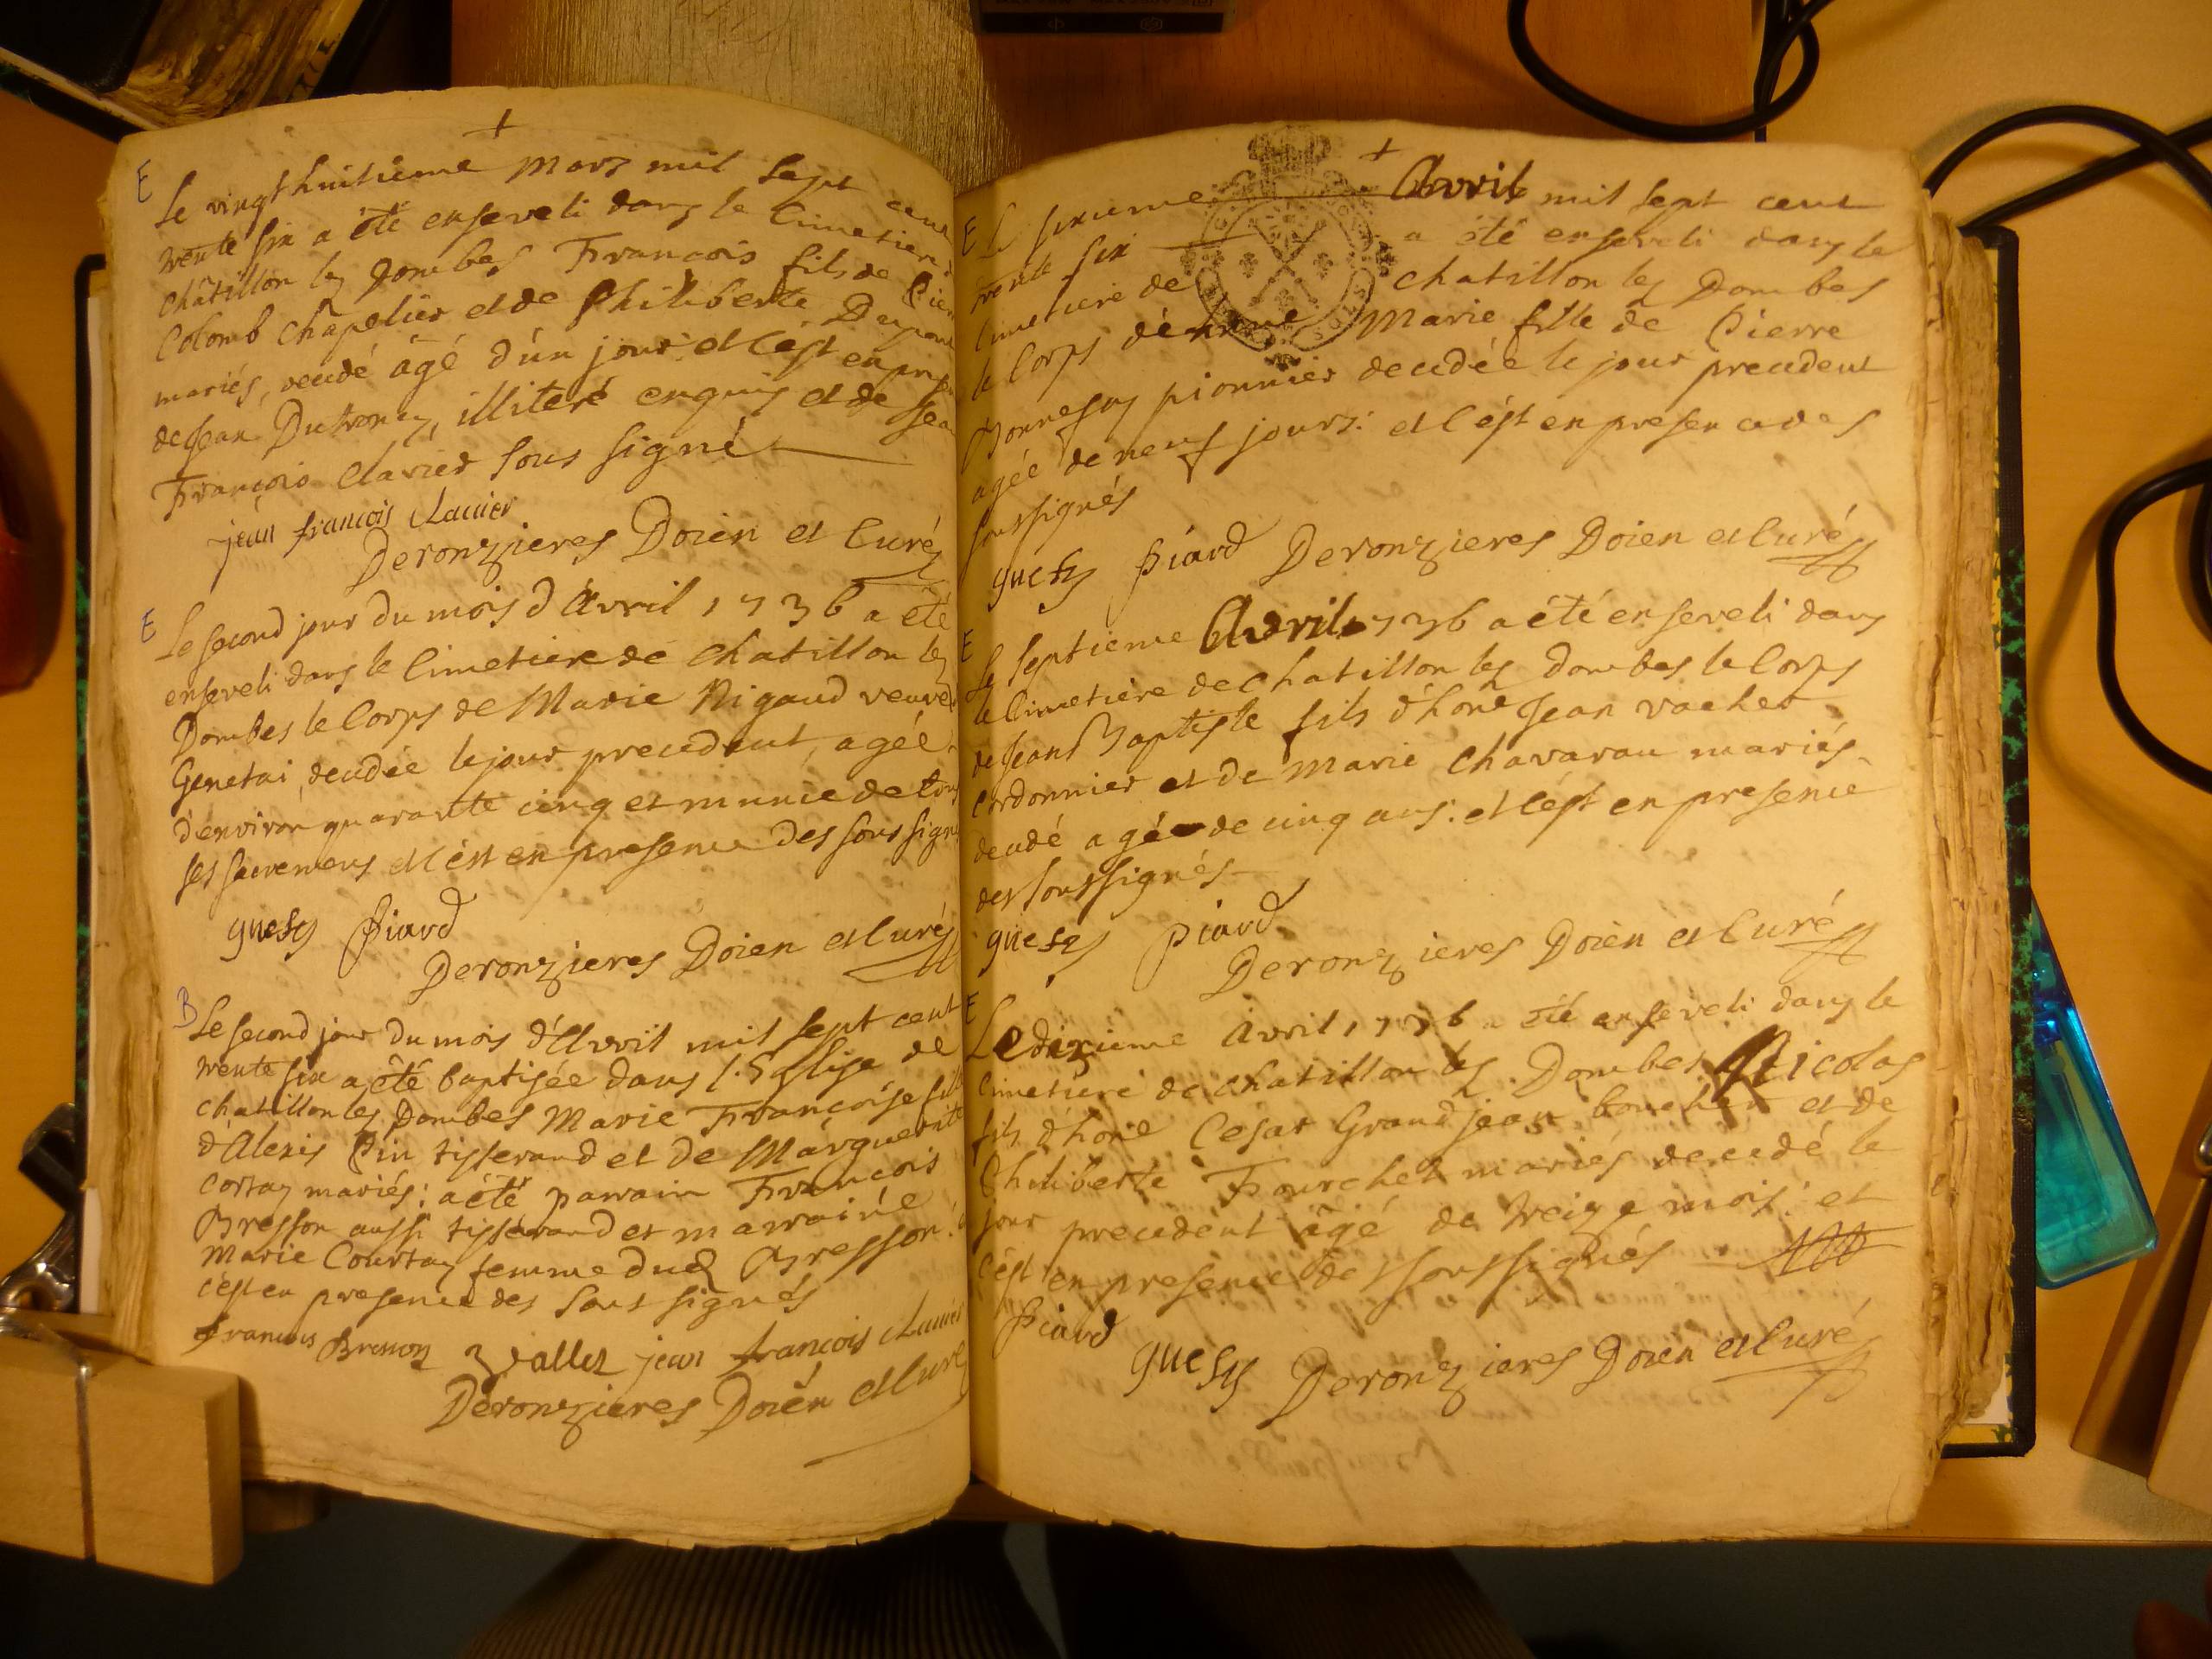 +
E Le vingt huitieme Mars mil sept cent
trente six a été enseveli dans le Cimetiere
châtillon les Dombes François fils de Pier
Colomb châpelier et de Philiberte
mariés, decedé âgé d'un jour et c'est en
de Jean Dutronc, illiteré enquis et de Jean
François Clavier sous signé
jean francois clavier
Deronzieres Doien et Curé
E Le second jour du mois d'Avril 1736 a été
enseveli dans le Cimetiere de chatillon les
Dombes le Corps de Marie Rigaud veuve
Genetai, decedée le jour precedent, agée
d'environ quarante cinq et munie de tous
ses sacremens et c'est en presence des soussigné
guesy Piard
Deronzieres Doien et Curé
B Le second jour du mois d'Avril mil sept cent
trente six a été baptisée dans l'Eglise de
chatillon les Dombes Marie Françoise fill
d'Alexis Pin tisserand et de Marguerite
Cortay mariés: a été parrain François
Bresson aussi tisserand et marraine
Marie Courtay femme dud Bresson:
c'est en presence des sous signés
francois Bresson vallet jean francois clavier
Deronzieres Doien et Curé
+
E Le sixieme Avril mil sept cent
trente six a été enseveli dans le
Cimetiere de chatillon les Dombes
le Corps de Marie fille de Pierre
pionnier decedée le jour precedent
agée de neuf jours: et c'est en presence des
soussignés
guesy Piard Deronzieres Doien et Curé
E Le septieme Avril 1736 a été enseveli dans
le Cimetiere de chatillon les Dombes le Corps
de Jean Baptiste fils d'hone Jean vacher
Cordonnier et de Marie Chavarau mariés
decedé agé de cinq ans: et c'est en presence
des soussignés
guesy Piard
Deronzieres Doien et Curé
E Le dixieme Avril 1736 a été enseveli dans le
Cimetiere de chatillon les Dombes Nicolas
fils d'hone Cesar Grandjean boucher et de
Philiberte Fourchet mariés decedé le
jour precedent âgé de treize mois: et
c'est en presence des soussignés
Piard
guesy Deronzieres Doien et Curé